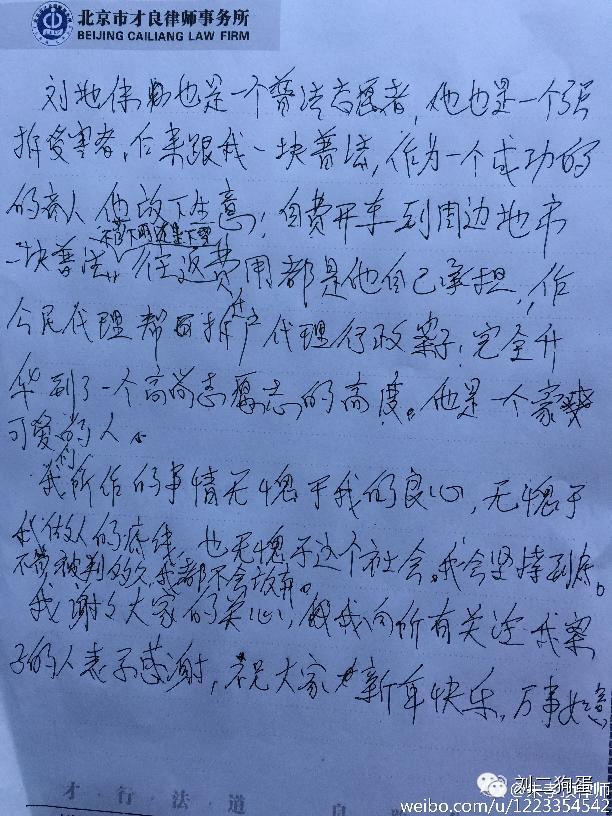 北京市才良律师事务所
BEIJING CAILIANG LAW FIRM
刘地伟也是一个普法志愿者，他也是一个强
拆受害者，后来跟我一块普法，作为一个成功的
的商人他放下生意，自费开车到周边地市
一块普法，往返费用都是他自己承担，作
公民代理帮拆迁户代理行政案子，完全升
华到了一个高尚志愿志的高度。他是一个豪爽
可爱的人。
我们所作的事情无愧于我的良心，无愧于
我做人的底线，也无愧于这个社会。我会坚持到底。
不管被判多久，我都不会放弃。
我谢谢大家的关心，我向所有关注我案
子的人表示感谢，祝大家新年快乐，万事如意
才 行 法 道
刘二狗蛋
律师
weibo.com/u/1223354542